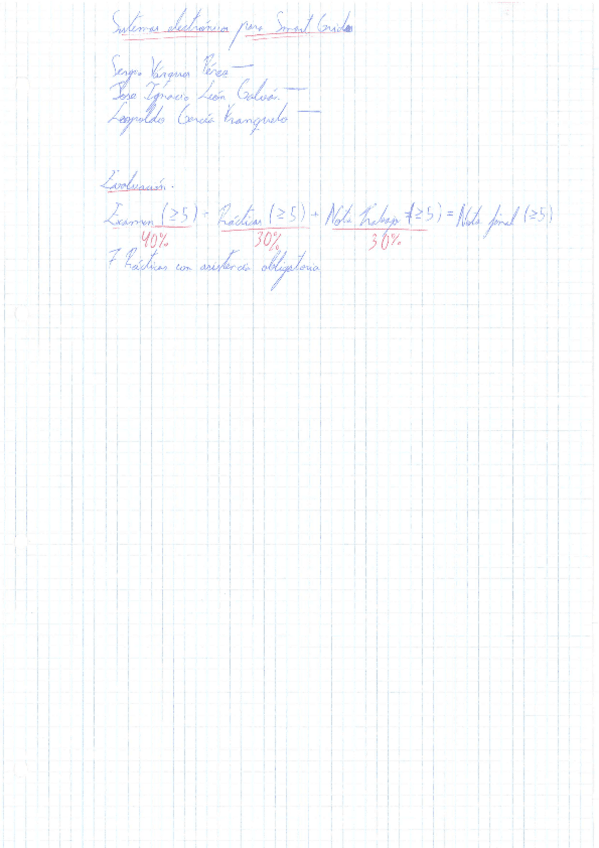 Sistemas electrónicos para Smart Grids
Sergio Vázquez Pérez —
Jose Ignacio León Galván. —
Leopoldo García Franquelo —
Evaluación.
Examen (≥5) + Prácticas (≥5) + Nota Trabajo (≥5) = Nota final (≥5)
40% 30% 30%
7 Prácticas con asistencia obligatoria